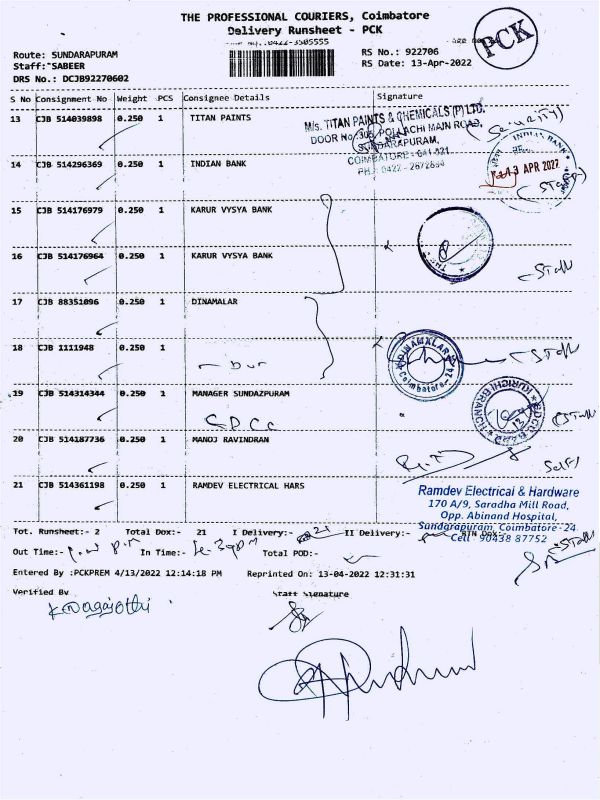 THE PROFESSIONAL COURIERS, Coimbatore
Delivery Runsheet - PCK
PCK
Route: SUNDARAPURAM
Staff: SABEER
DRS No.: DCJB92270602
RS No.: 922706
RS Date: 13-Apr-2022
S No Consignment No Weight PCS Consignee Details Signature
13 CJB 514039898 0.250 1 TITAN PAINTS
M/s. TITAN PAINTS & CHEMICALS (P) LTD.
DOOR No. 306, POLLACHI MAIN ROAD,
SUNDARAPURAM,
COIMBATORE - 641 021
PH: 0422 - 2672664
(Security)
14 CJB 514296369 0.250 1 INDIAN BANK
INDIAN BANK
13 APR 2022
(Staff)
15 CJB 514176979 0.250 1 KARUR VYSYA BANK
16 CJB 514176964 0.250 1 KARUR VYSYA BANK
Staff
17 CJB 88351096 0.250 1 DINAMALAR
18 CJB 1111948 0.250 1
DINAMALAR
Coimbatore-24
Staff
19 CJB 514314344 0.250 1 MANAGER SUNDAZPURAM
KURICHI BRANCH
(Staff
20 CJB 514187736 0.250 1 MANOJ RAVINDRAN
Self
21 CJB 514361198 0.250 1 RAMDEV ELECTRICAL HARS
Ramdev Electrical & Hardware
170 A/9, Saradha Mill Road,
Opp. Abinand Hospital,
Sundarapuram, Coimbatore-24
Cell 90438 87752
Tot. Runsheet:- 2 Total Dox:- 21 I Delivery:- 21 II Delivery:- RTN Dox:-
(Staff
Out Time:- In Time:- Total POD:-
Entered By :PCKPREM 4/13/2022 12:14:18 PM Reprinted On: 13-04-2022 12:31:31
Verified By Staff Signature